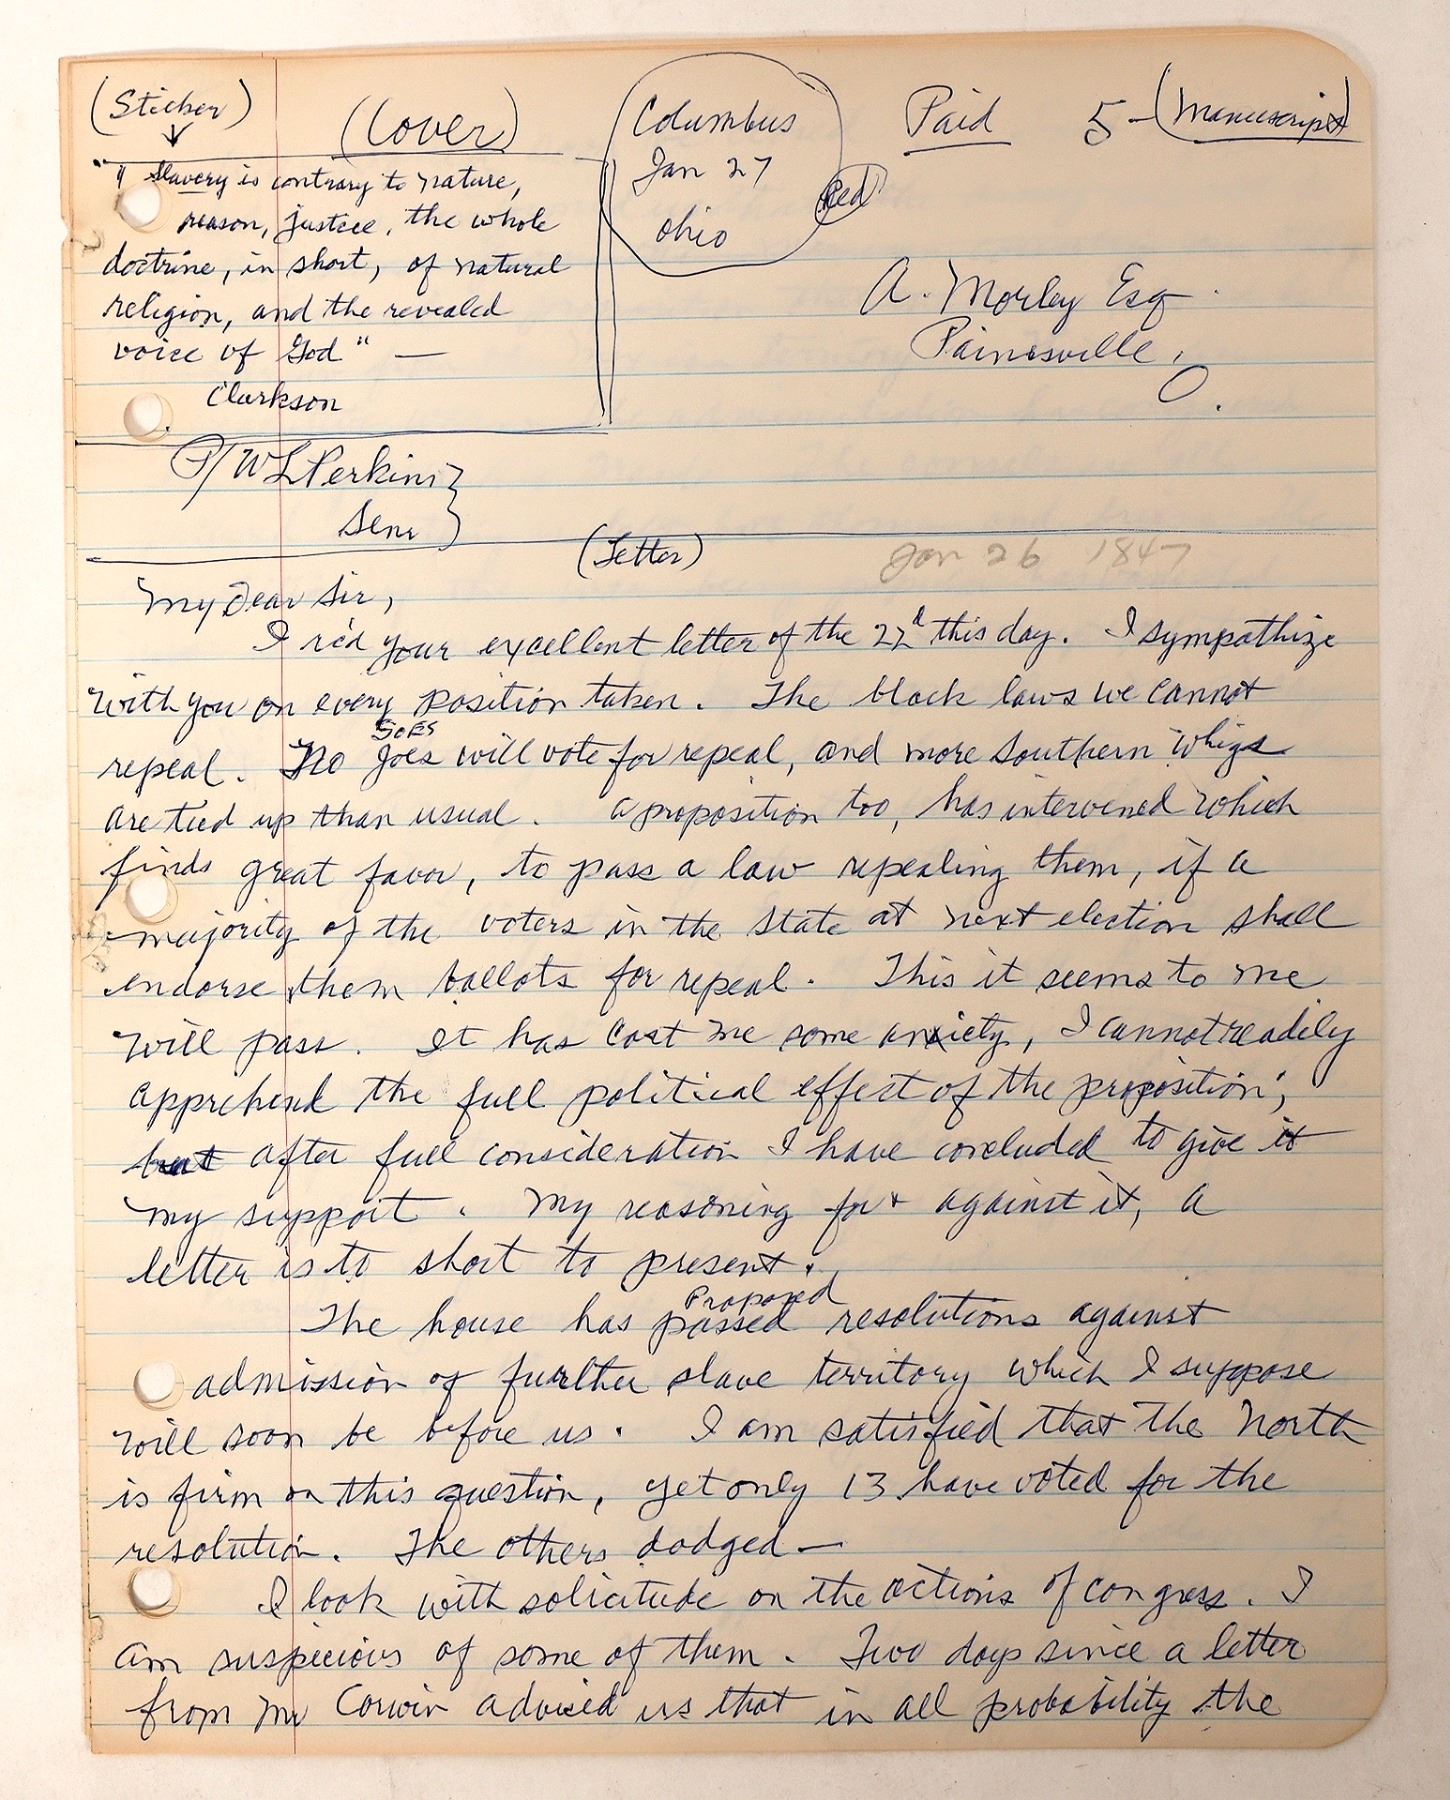 (Sticker)
(Cover)
Columbus
Jan 27
Ohio
Red
Paid 5 - (Manuscript)
" Slavery is contrary to nature,
reason, justice, the whole
doctrine, in short, of natural
religion, and the revealed
voice of God " —
Clarkson
A. Morley Esq.
Painesville,
O.
P/ W L Perkins }
Senr
(Letter)
Jan 26 1847
My Dear Sir,
I rec'd your excellent letter of the 22d this day. I sympathize
with you on every position taken. The black laws we cannot
SoEs
repeal. No Joes will vote for repeal, and more Southern Whigs
are tied up than usual. A proposition too, has intervened which
finds great favor, to pass a law repealing them, if a
majority of the voters in the State at next election shall
endorse them ballots for repeal. This it seems to me
will pass. It has cost me some anxiety, I cannot readily
apprehend the full political effect of the proposition;
but after full consideration I have concluded to give it
my support. My reasoning for + against it, a
letter is to short to present.
Proposed
The house has passed resolutions against
admission of further slave territory which I suppose
will soon be before us. I am satisfied that the North
is firm on this question, yet only 13 have voted for the
resolution. The others dodged —
I look with solicitude on the actions of Congress. I
am suspecious of some of them. Two days since a letter
from Mr Corwin advised us that in all probability the